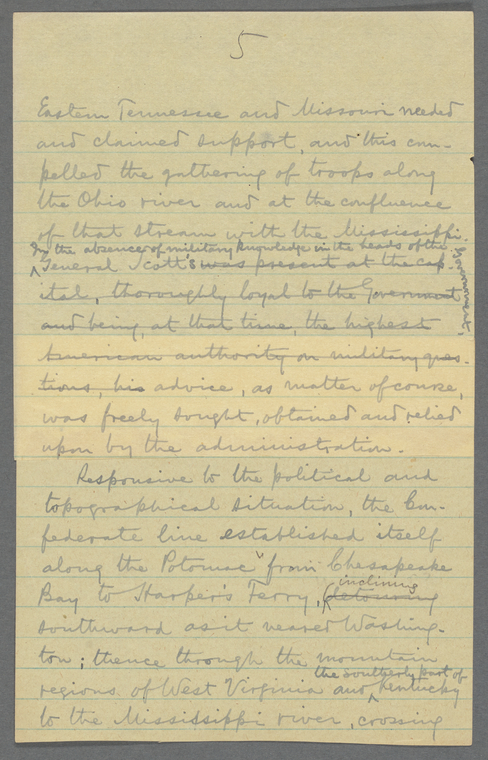 5
Eastern Tennessee and Missouri needed
and claimed support, and this com-
pelled the gathering of troops along
the Ohio river and at the confluence
of that stream with the Mississippi.
In the absence of military knowledge in the heads of the
Government,
General Scott's was present at the cap
ital, thoroughly loyal to the Government
and being, at that time, the highest
American authority on military ques-
tions, his advice, as matter of course,
was freely sought, obtained and relied
upon by the administration.
Responsive to the political and
topographical situation, the Con-
federate line established itself
along the Potomac from Chesapeake
inclining
Bay to Harper's Ferry, (detouring
southward as it neared Washing-
ton; thence through the mountain
the southerly part of
regions of West Virginia and Kentucky
to the Mississippi river, crossing